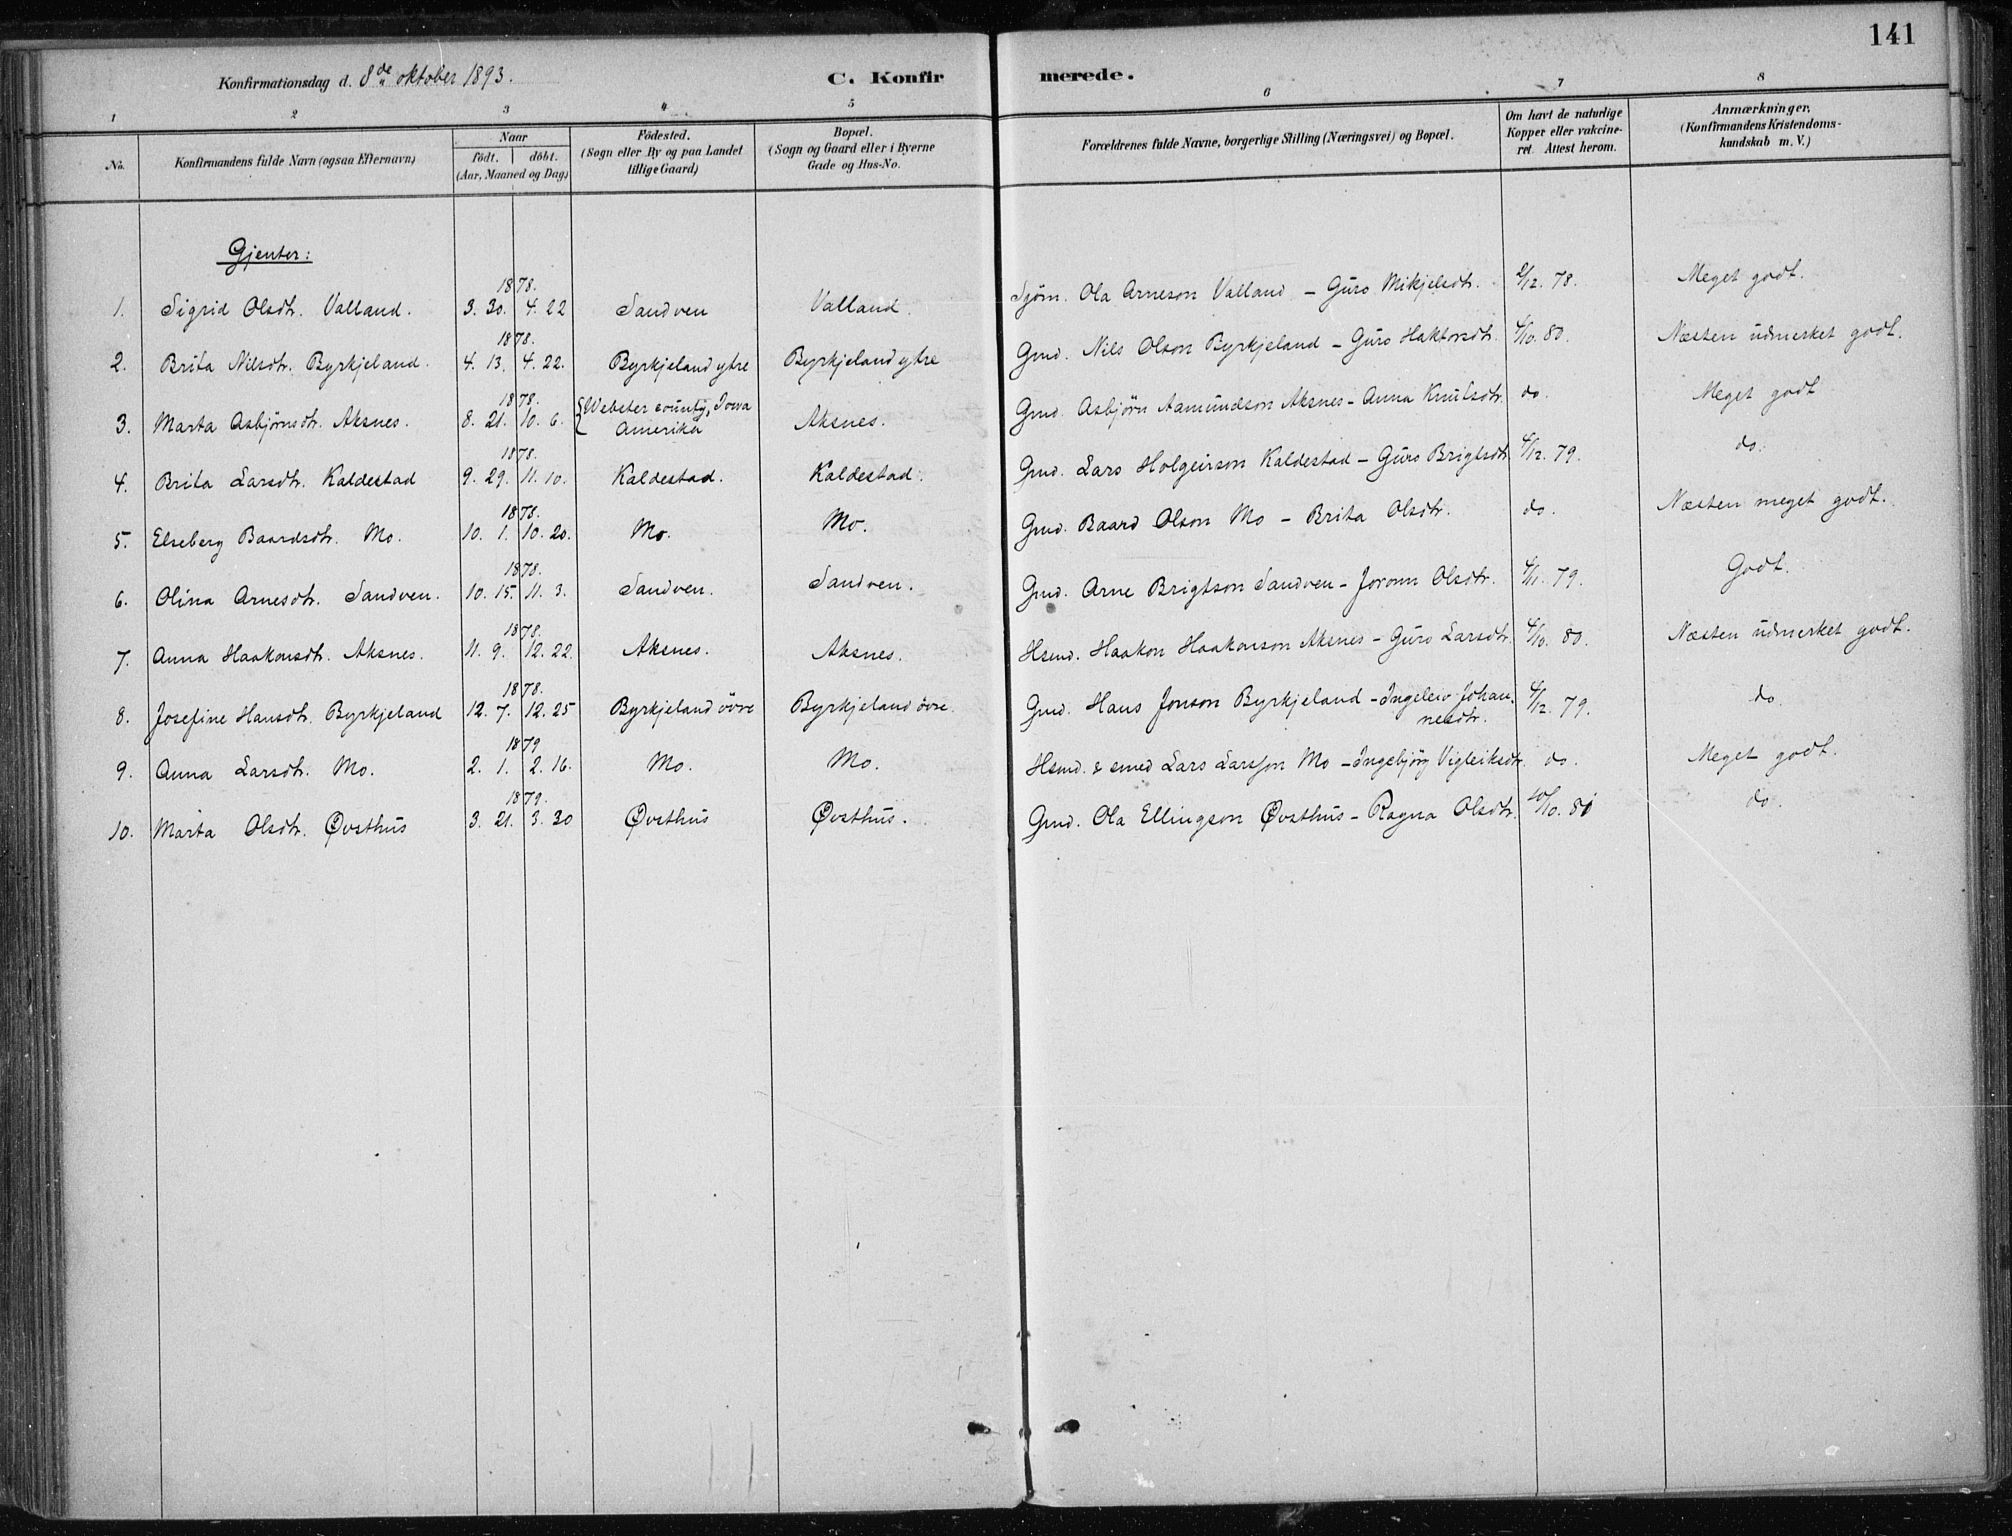 141
Konfirmationsdag d. 8de oktober 1893.
C. Konfirmerede.
1 2 3 4 5 6 7 8
No.
Konfirmandens fulde Navn (ogsaa Efternavn)
Naar
födt. döbt.
(Aar, Maaned og Dag)
Födested.
(Sogn eller By og paa Landet
tillige Gaard)
Bopæl.
(Sogn og Gaard eller i Byerne
Gade og Hus-No.
Forældrenes fulde Navne, borgerlige Stilling (Næringsvei) og Bopæl.
Om havt de naturlige
Kopper eller vakcine-
ret. Attest herom.
Anmærkninger.
(Konfirmandens Kristendoms-
kundskab m. V.)
Gjenter:
1878.
1. Sigrid Olsdtr. Valland. 3. 30. 4. 22 Sandven Valland. Ola Arneson Valland – Guro Mikjelsdtr. 2/12. 78. Meget godt.
1878.
2. Brita Nilsdtr. Byrkjeland. 4. 13. 4. 22. Byrkjeland ytre Byrkjeland ytre Gmd. Nils Olson Byrkjeland – Guro Haktorsdtr. 4/10. 80. Næsten udmerket godt.
1878.
3. Marta Asbjørnsdtr. Aksnes. 8. 21. 10. 6. Webster county, Iowa Amerika Aksnes. Gmd. Asbjørn Aamundson Aksnes – Anna Knutsdtr. do. Meget godt
1878.
4. Brita Larsdtr. Kaldestad 9. 29. 11. 10. Kaldestad. Kaldestad. Gmd. Lars Holgeirson Kaldestad – Guro Brigtsdtr. 4/12. 79. do.
1878.
5. Elseberg Baardsdtr. Mo. 10. 1. 10. 20. Mo. Mo. Gmd. Baard Olson Mo – Brita Olsdtr. do. Næsten meget godt.
1878.
6. Olina Arnesdtr. Sandven. 10. 15. 11. 3. Sandven. Sandven. Gmd. Arne Brigtson Sandven – Joronn Olsdtr. 4/11. 79. Godt.
1878.
7. Anna Haakonsdtr. Aksnes. 11. 9. 12. 22. Aksnes. Aksnes. Hsmd. Haakon Haakonson Aksnes – Guro Larsdtr. 4/10. 80. Næsten udmerket godt.
1878.
8. Josefine Hansdtr. Byrkjeland 12. 7. 12. 25 Byrkjeland övre Byrkjeland övre. Gmd. Hans Jonson Byrkjeland – Ingeleiv Johan-
nesdtr. 4/12. 79. do.
1879
9. Anna Larsdtr. Mo. 2. 1. 2. 16. Mo. Mo. Hsmd. & smed Lars Larsson Mo – Ingebjörg Vigleiksdtr. do. Meget godt.
1879.
10. Marta Olsdtr. Øvsthus 3. 21. 3. 30 Øvsthus Øvsthus. Gmd. Ola Ellingson Øvsthus – Ragna Olsdtr. do.